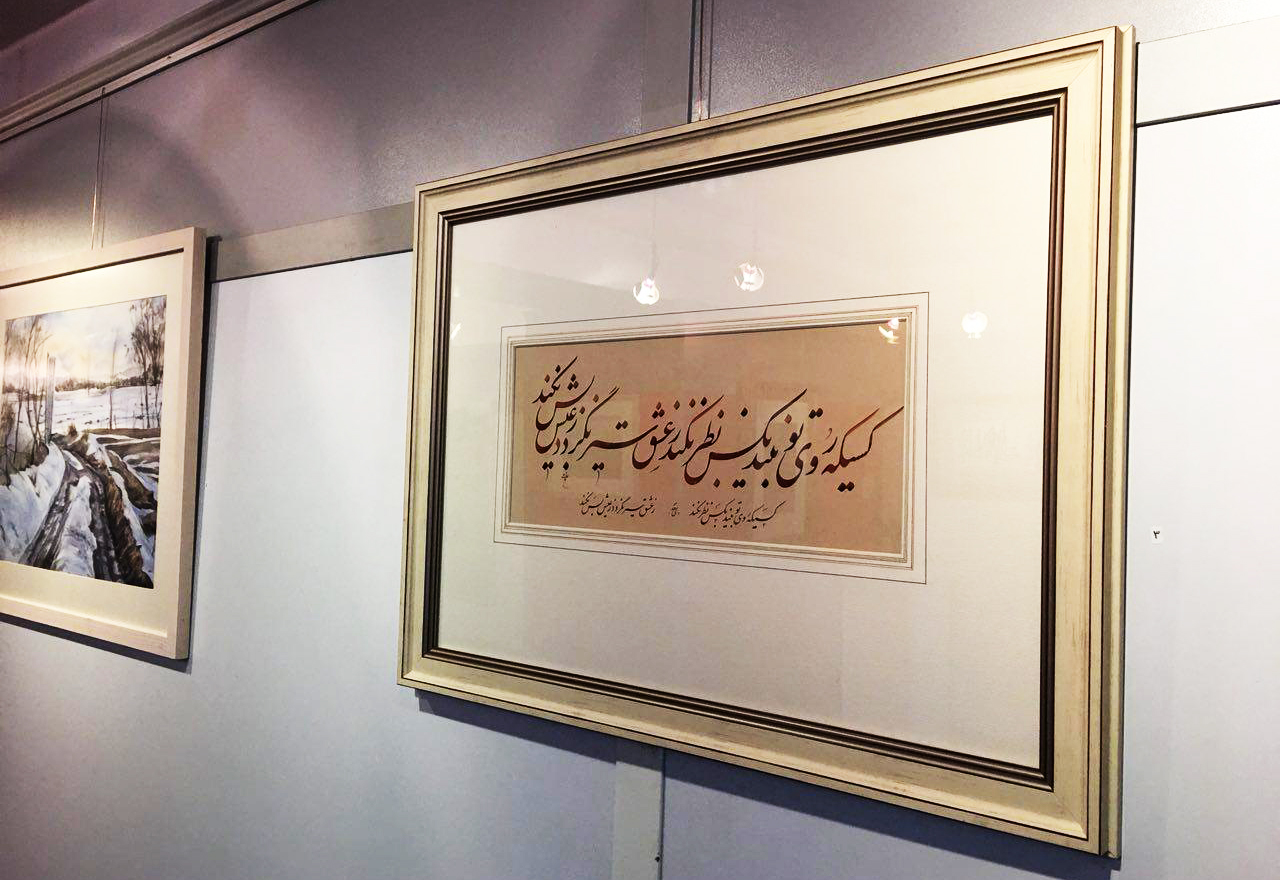 کسیکه روی تو بیند بکس نظر نکند ز عشق سیر نگردد ز عیش بس نکند
کسیکه روی تو بیند بکس نظر نکند ز عشق سیر نگردد ز عیش بس نکند
۳